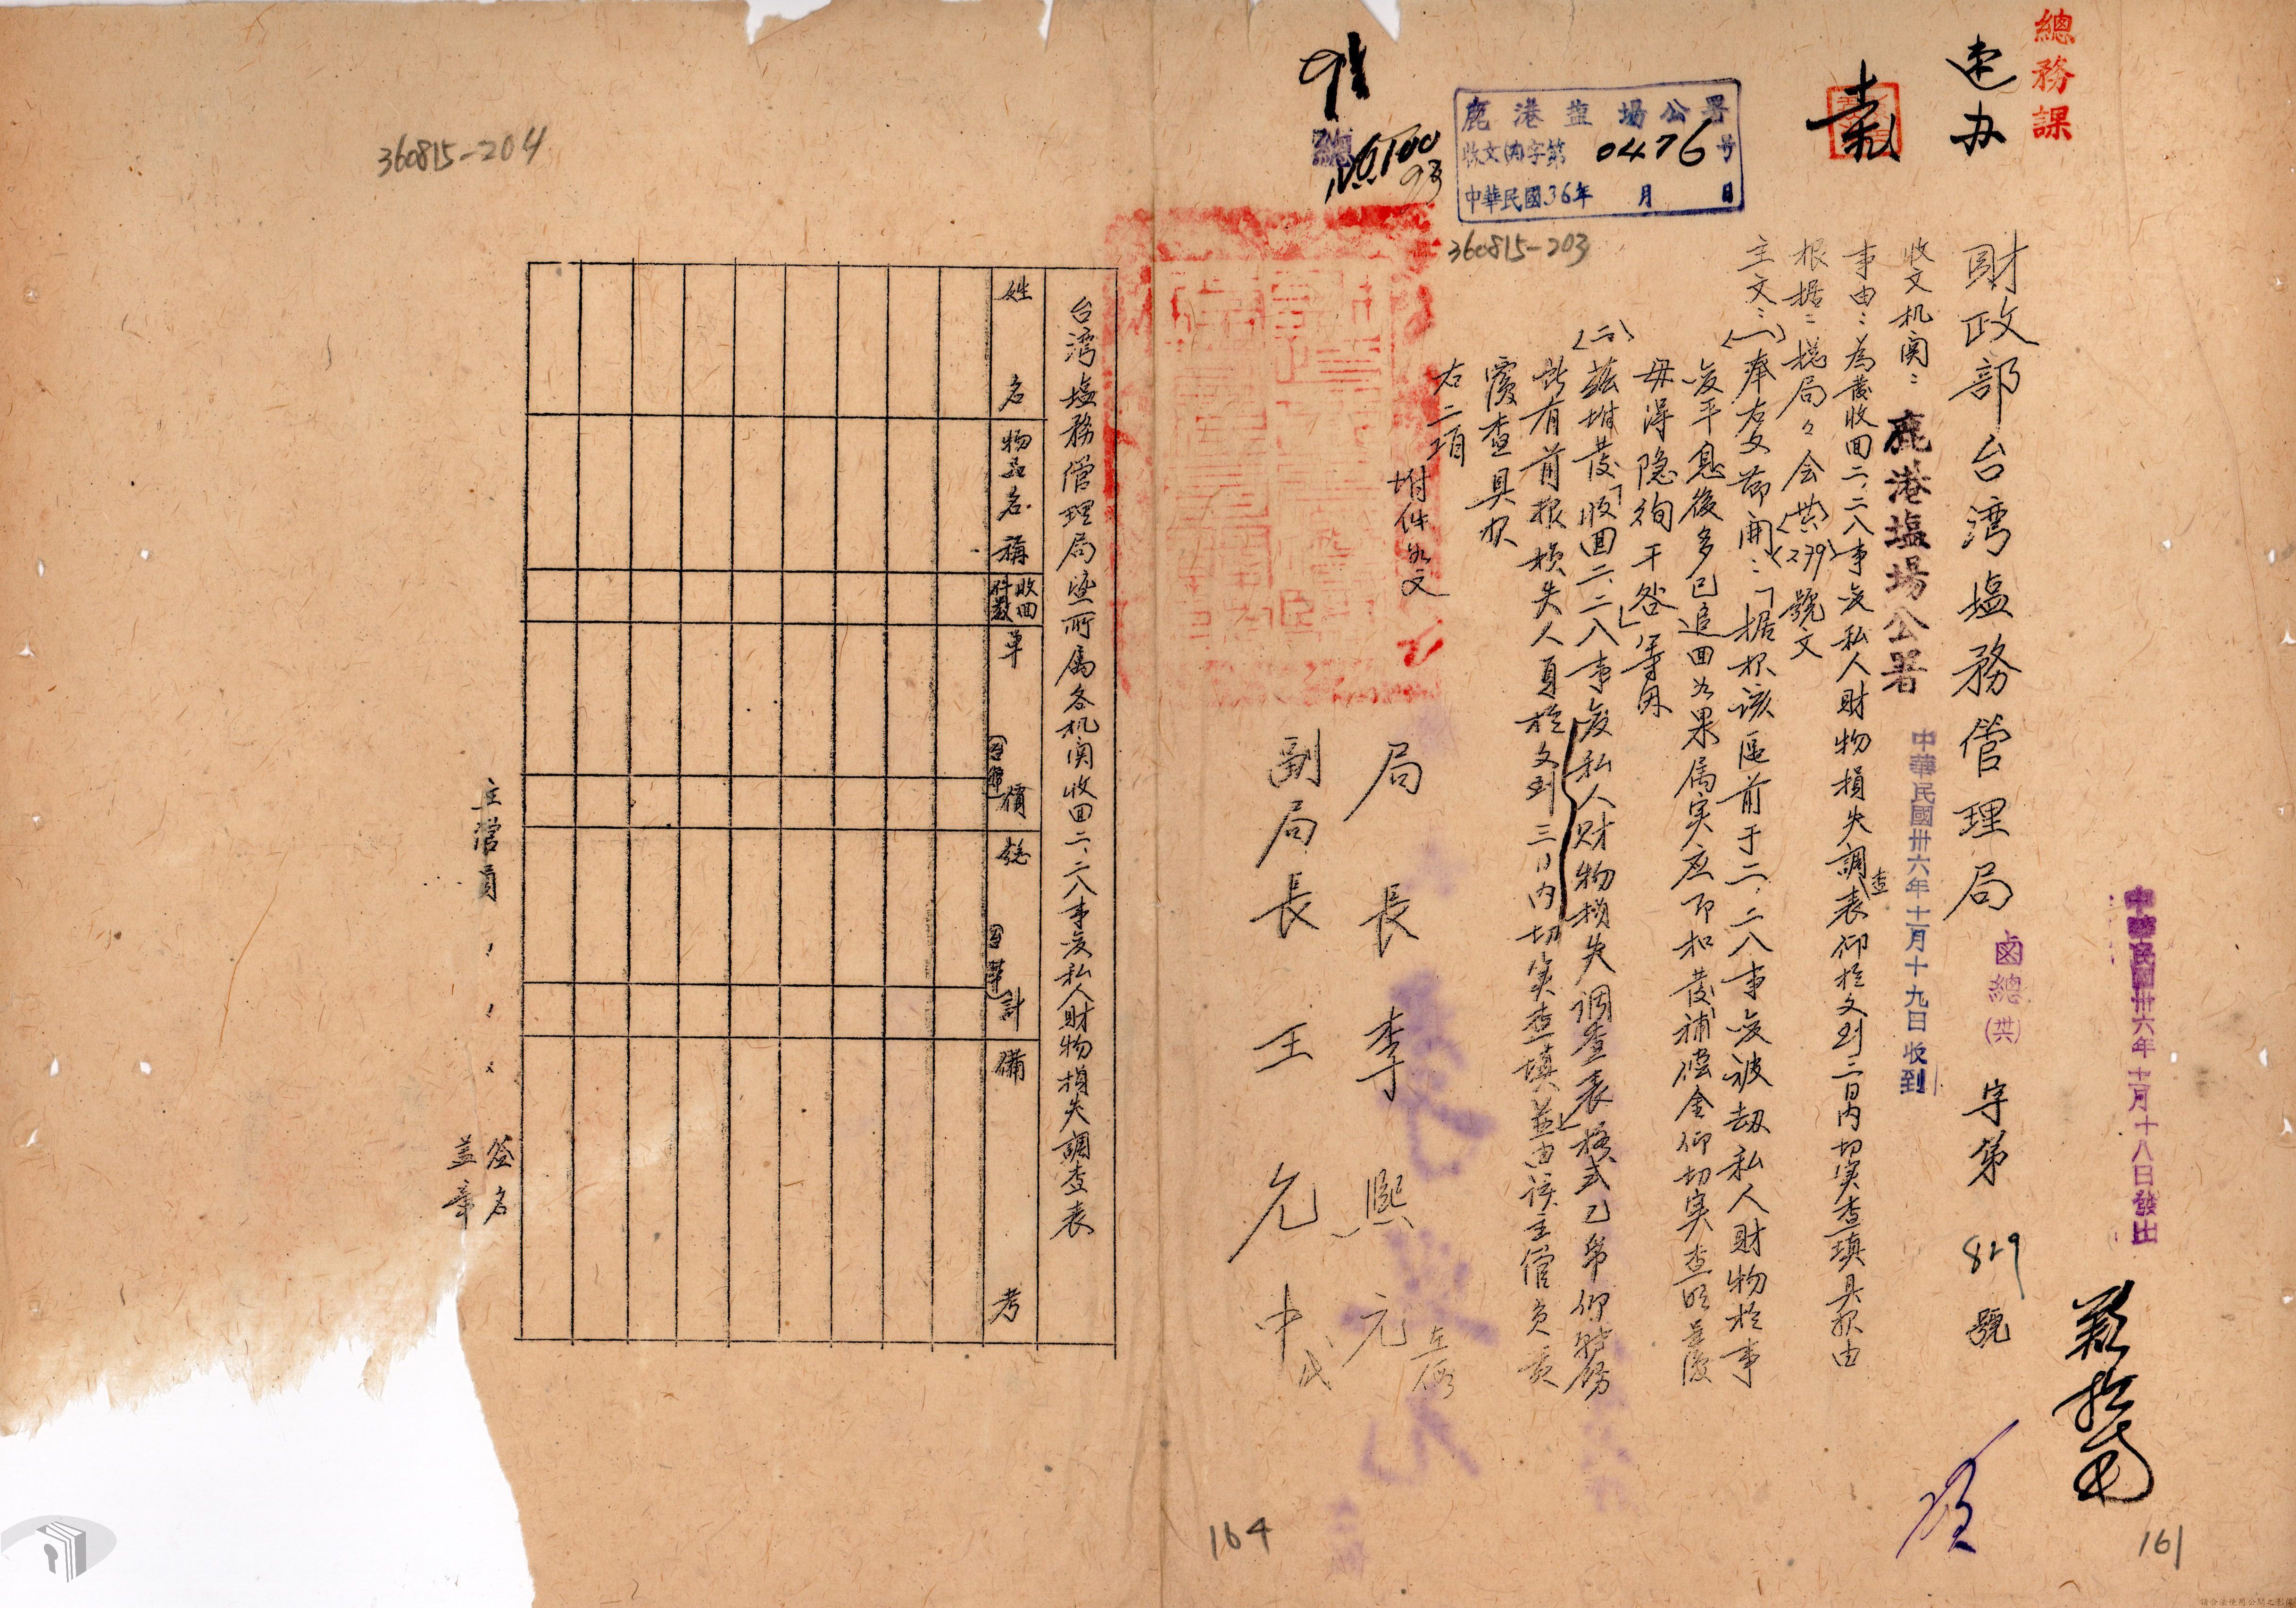 總務課
速办
中華民國卅六年十一月十八日發出
財政部台湾塩務管理局
鹵總(共)字第829號
收文机関：鹿港塩場公署
中華民國卅六年十一月十九日收到
事由：為發收回二、二八事変私人財物損失調查表仰於文到三日內切実查填具報由
根据：總局
會(共)(279)號文
主文：(一)奉右文節開：「据报該區前于二、二八事変被刼私人財物於事
変平息後多已追回如果属实应即扣發補償金仰切実查明具覆
毋得隐徇干咎」等因
(二)茲坿發「收回二、二八事変私人財物損失调查表」格式乙帋仰轉飭
所有前报损失人員於文到三日內切実查填並由該主管負責
覆查具报
右二項
坿件如文
局長李熙元
副局長王允中
鹿港塩場公署
收文(內)字第0476号
中華民國36年 月 日
360815-203
161
360815-204
台湾塩務管理局曁所属各机関收回二、二八事変私人財物損失調查表
姓名
物品名稱
收回件数
單價(台幣)
總計(台幣)
備考
主管員
簽名
盖章
164